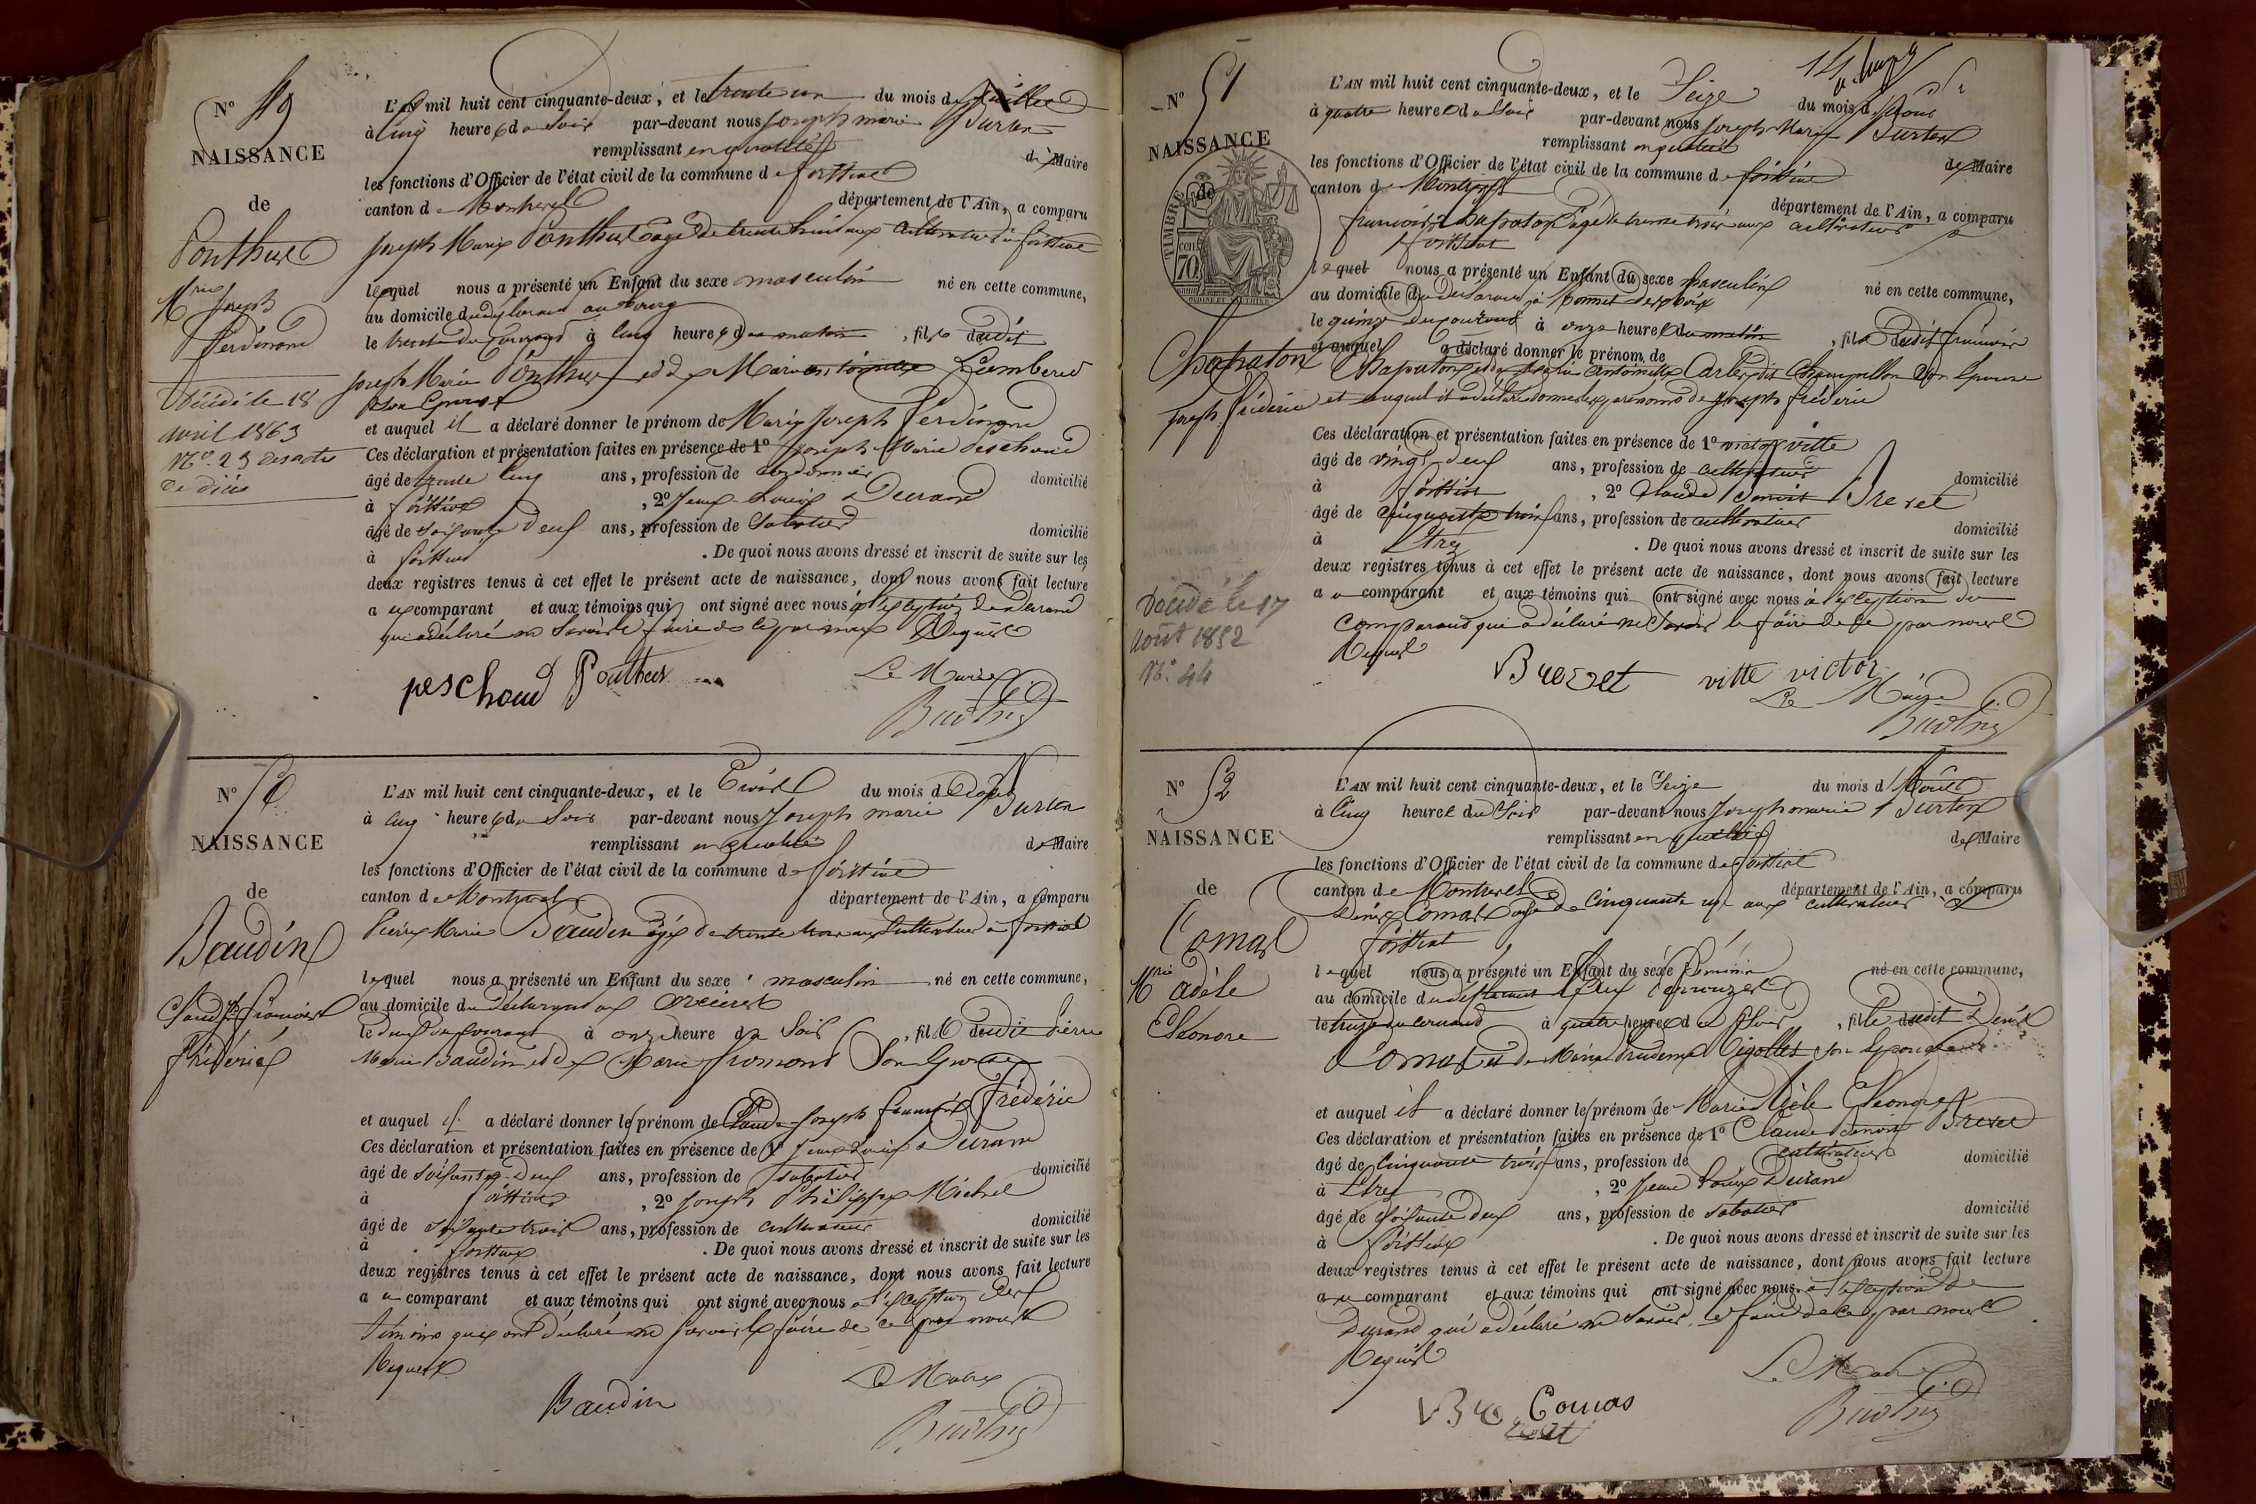 N° 49
NAISSANCE
de
Ponthus
Mrie Joseph
Ferdinand
Décédé le 18
avril 1863
N° 23 des actes
de décès
L'AN mil huit cent cinquante-deux, et le trente un du mois de Juillet
à Cinq heures du Soir par-devant nous Joseph marie Burtin
remplissant en qualité de Maire
les fonctions d'Officier de l'état civil de la commune de foissiat
canton de Montrevel département de l'Ain, a comparu
Joseph Marie Ponthus agé de trente huit ans Cultivateur à foissiat
lequel nous a présenté un Enfant du sexe masculin né en cette commune,
au domicile du déclarant au bourg
le trente du Courant à Cinq heures du matin, fils dudit
Joseph Marie Ponthus et de Marie antoinette
Son Epouse
et auquel il a déclaré donner le prénom de Marie Joseph Ferdinand
Ces déclaration et présentation faites en présence de 1° Joseph Marie Peschoud
âgé de trente Cinq ans, profession de cordonnier domicilié
à foissiat, 2° Jean Louis Durand
âgé de Soixante Deux ans, profession de Sabotier domicilié
à foissiat. De quoi nous avons dressé et inscrit de suite sur les
deux registres tenus à cet effet le présent acte de naissance, dont nous avons fait lecture
au comparant et aux témoins qui ont signé avec nous à l'exception de Durand
qui a déclaré ne Savoir le faire de ce par nous Requis
peschoud Ponthus
Le Maire
Burtin
N° 50
NAISSANCE
de
Baudin
Claude Jh François
Frédéric
L'AN mil huit cent cinquante-deux, et le Trois du mois d'Août
à Cinq heures du Soir par-devant nous Joseph marie Burtin
remplissant en qualité de Maire
les fonctions d'Officier de l'état civil de la commune de foissiat
canton de Montrevel département de l'Ain, a comparu
Pierre Marie Baudin agé de trente trois ans Cultivateur à foissiat
lequel nous a présenté un Enfant du sexe masculin né en cette commune,
au domicile du déclarant
le deux du Courant à onze heure du Soir, fils dudit Pierre
Marie Baudin et de Marie fromont Son Epouse
et auquel il a déclaré donner le prénom de Claude Joseph francois Frédéric
Ces déclaration et présentation faites en présence de 1° Jean Louis Durand
âgé de Soixante Deux ans, profession de Sabotier domicilié
à foissiat, 2° Joseph Philippe Michel
âgé de Soixante trois ans, profession de Cultivateur domicilié
à foissiat. De quoi nous avons dressé et inscrit de suite sur les
deux registres tenus à cet effet le présent acte de naissance, dont nous avons fait lecture
au comparant et aux témoins qui ont signé avec nous à l'exception des
témoins qui ont déclaré ne Savoir le faire de ce par nous
Requis
Baudin
Le Maire
Burtin
N° 51
NAISSANCE
de
TIMBRE
70
Chapaton
Joseph frédéric
Décédé le 17
août 1852
N° 44
L'AN mil huit cent cinquante-deux, et le Seize du mois d'Aout
à quatre heures du Soir par-devant nous Joseph Marie Burtin
remplissant en qualité de Maire
les fonctions d'Officier de l'état civil de la commune de foissiat
canton de Montrevel département de l'Ain, a comparu
françois Chapaton agé de trente trois ans cultivateur à
foissiat
lequel nous a présenté un Enfant du sexe masculin né en cette commune,
au domicile du déclarant à
le quinze du courant à onze heures du matin, fils dudit françois
et auquel a déclaré donner le prénom de
Chapaton et de Marie Antoinette dit Champollon Son Epouse
et auquel il a déclaré donner les prénoms de Joseph frédéric
Ces déclaration et présentation faites en présence de 1° victor vitte
âgé de vingt deux ans, profession de cultivateur domicilié
à foissiat, 2° Claude Benoit Brevet
âgé de cinquante trois ans, profession de cultivateur domicilié
à Etrez. De quoi nous avons dressé et inscrit de suite sur les
deux registres tenus à cet effet le présent acte de naissance, dont nous avons fait lecture
au comparant et aux témoins qui ont signé avec nous à l'exception du
Comparant qui a déclaré ne Savoir le faire de ce par nous
Requis
Brevet vitte victor
Le Maire
Burtin
N° 52
NAISSANCE
de
Comas
Mrie adèle
Eléonore
L'AN mil huit cent cinquante-deux, et le Seize du mois d'Août
à Cinq heures du Soir par-devant nous Joseph marie Burtin
remplissant en qualité de Maire
les fonctions d'Officier de l'état civil de la commune de foissiat
canton de Montrevel département de l'Ain, a comparu
Denis Comas agé de Cinquante un ans cultivateur à
foissiat
lequel nous a présenté un Enfant du sexe féminin né en cette commune,
au domicile du déclarant
le treize du Courant à quatre heures du Soir, fille dudit Denis
Comas et de Marie Prudence Son Epouse
et auquel il a déclaré donner le prénom de Marie Adèle Eléonore
Ces déclaration et présentation faites en présence de 1° Claude Benoit Brevet
âgé de Cinquante trois ans, profession de cultivateur domicilié
à Etrez, 2° Jean Louis Durand
âgé de Soixante deux ans, profession de Sabotier domicilié
à foissiat. De quoi nous avons dressé et inscrit de suite sur les
deux registres tenus à cet effet le présent acte de naissance, dont nous avons fait lecture
au comparant et aux témoins qui ont signé avec nous à l'exception de
Durand qui a déclaré ne Savoir le faire de ce par nous
Requis
Comas
Le Maire
Burtin